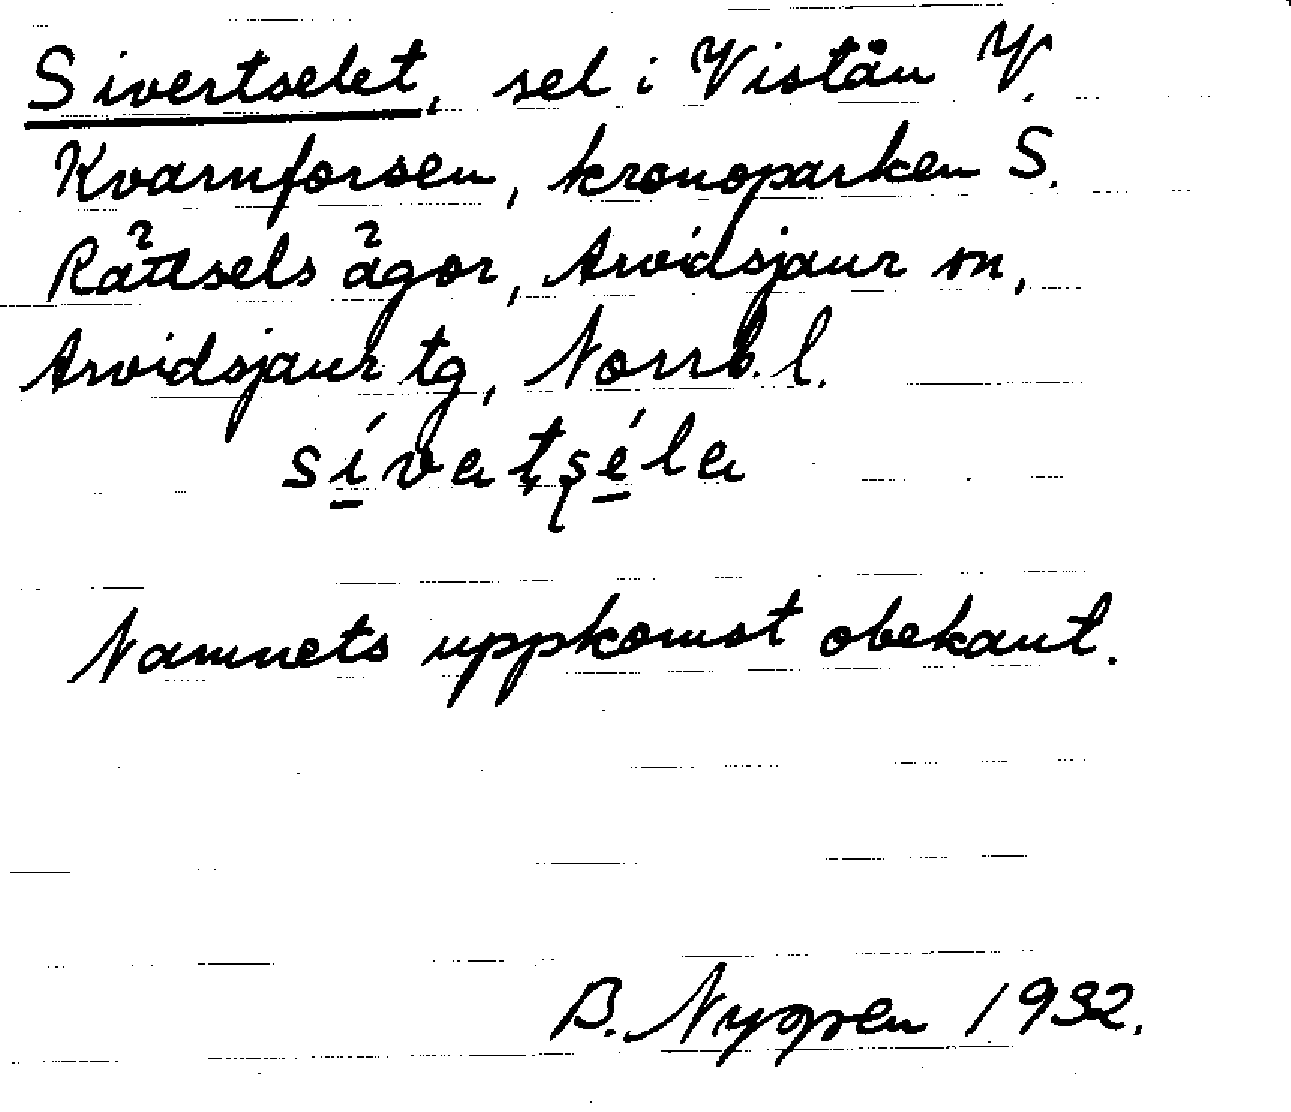 Sivertselet, sel i Vistån V.
Kvarnforsen, kronoparken S.
Rättsels ägor, Arvidsjaur sn,
Arvidsjaur tg, Norrb. l.
Namnets uppkomst obekant.
B. Nygren 1932.